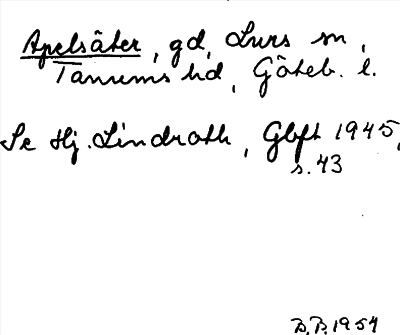 Apelsäter, gd, Lurs sn,
Tanums hd, Göteb. l.
Se Hj. Lindroth, Gbft 1945,
s. 43
B.P. 1954